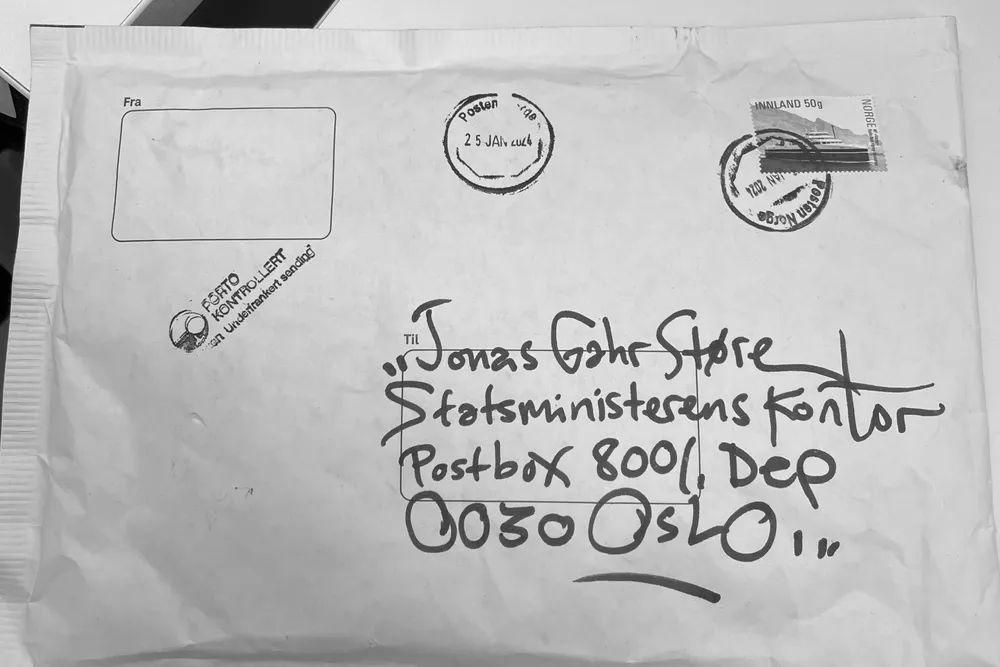 Fra
Posten Norge
25 JAN 2024
INNLAND 50g
NORGE
JAN 2024
Posten Norge
PORTO
KONTROLLERT
Underfrankert sending
Til
„Jonas Gahr Støre
Statsministerens Kontor
Postbox 8001. Dep
0030 OSLO.„